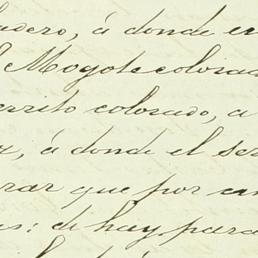 adero, á donde en
Mogote colorad
errito colorado, a
á donde el se
rar que por en
s: de hay para